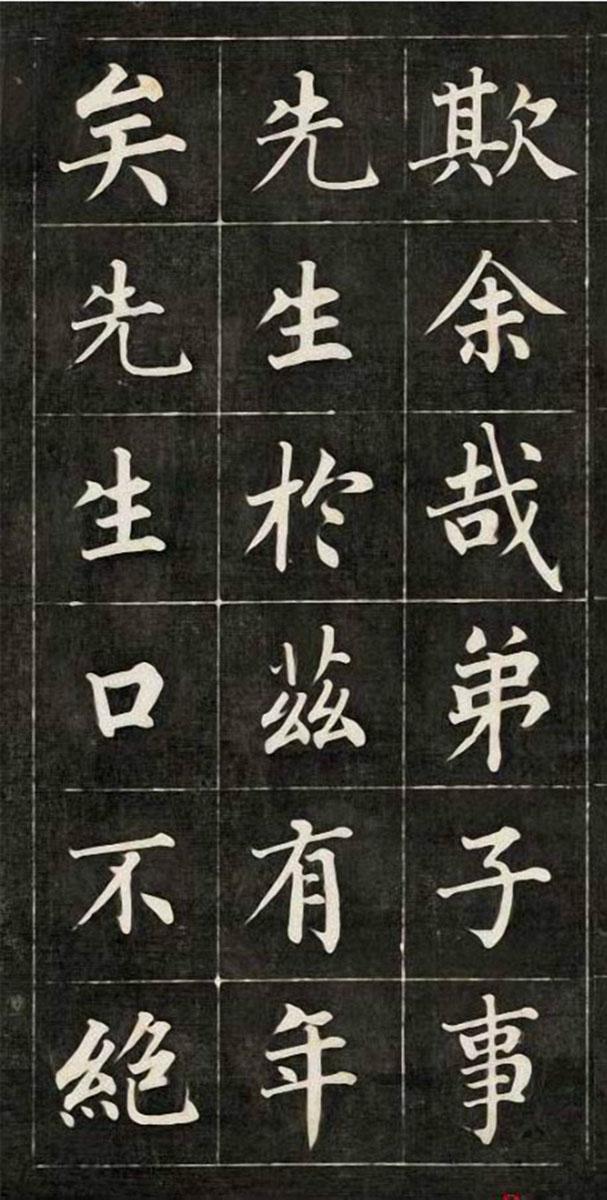 欺余哉弟子事
先生於茲有年
矣先生口不絕